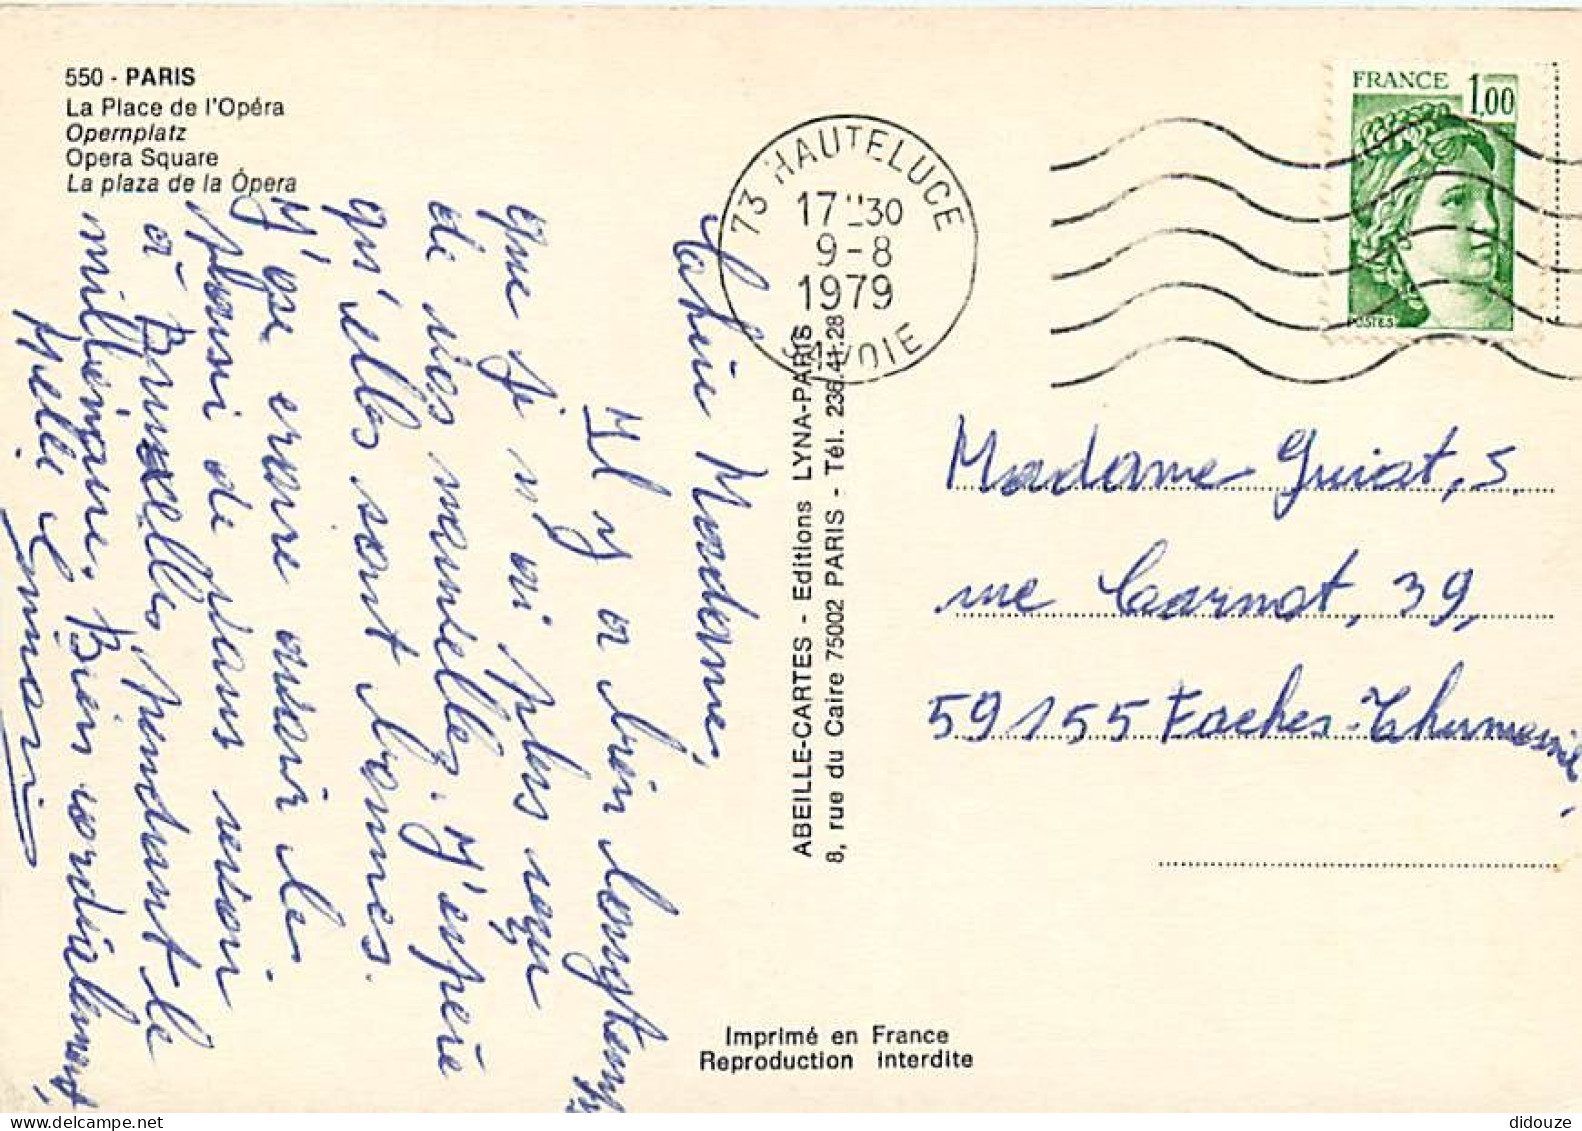 550 - PARIS
La Place de l'Opéra
Opernplatz
Opera Square
La plaza de la Ópera
Chère Madame,
Il y a bien longtemps
que je n'ai plus reçu
de vos nouvelles. J'espère
qu'elles sont bonnes.
J'ose croire avoir le
plaisir de vous revoir
à Bruxelles, pendant le
millénaire. Bien cordialement,
Melle
ABEILLE-CARTES - Editions LYNA-PARIS
8, rue du Caire 75002 PARIS - Tél. 236.41.28
73 HAUTELUCE
17H30
9-8
1979
SAVOIE
FRANCE 1,00
POSTES
Madame Guiat, S.
rue Carnot, 39,
59155 Faches-Thumesnil.
Imprimé en France
Reproduction interdite
didouze